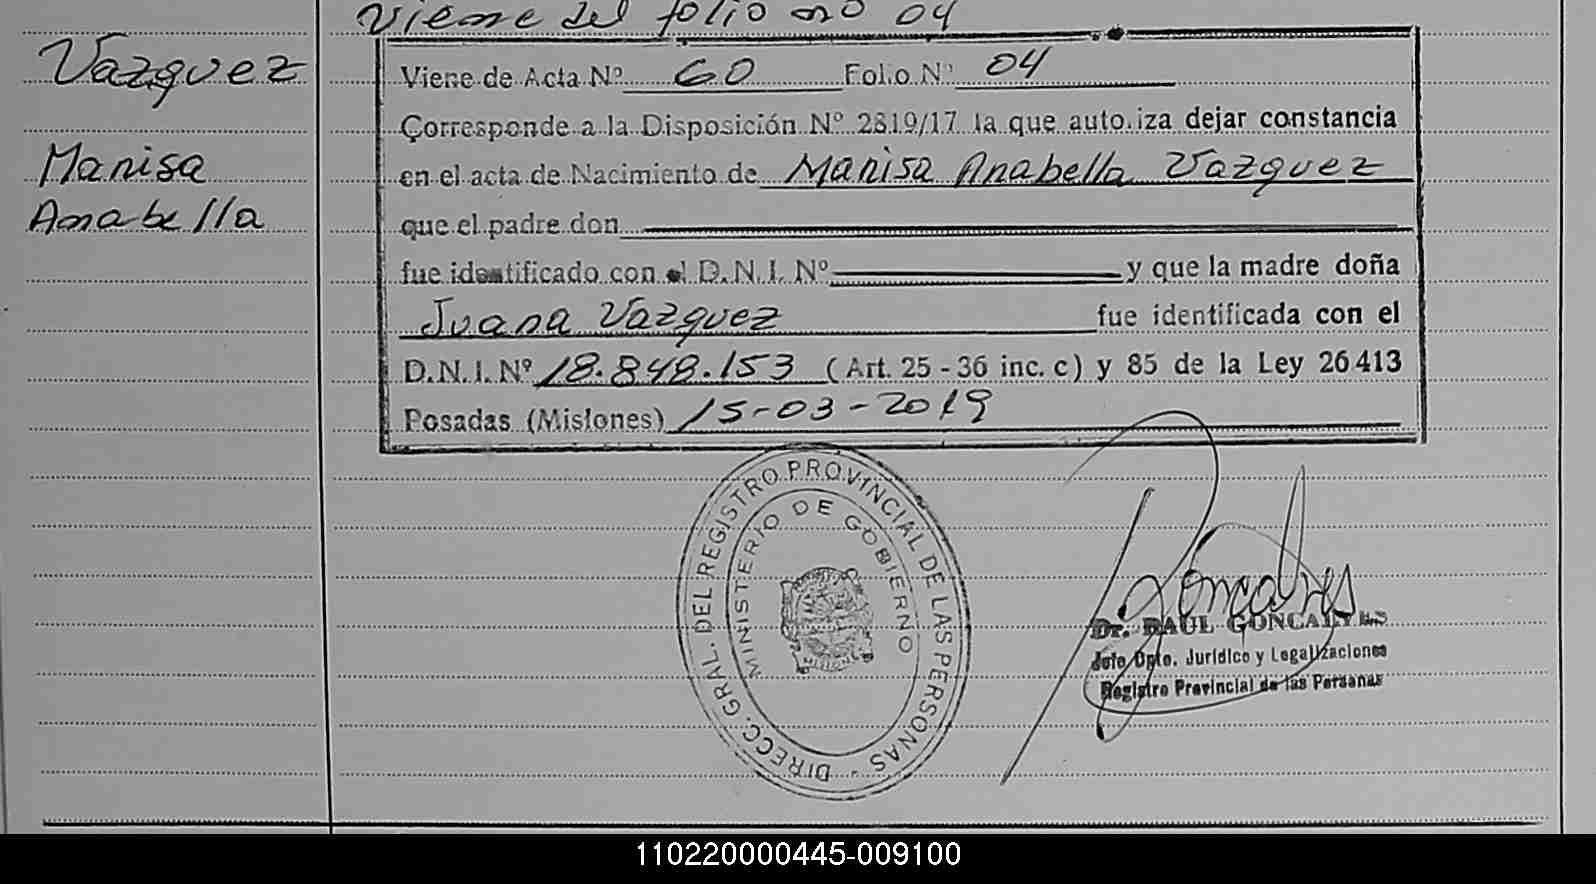 Viene del folio nro 04
Vazquez
Marisa
Anabella
Viene de Acta Nº 60 Folio Nº 04
Corresponde a la Disposición Nº 2819/17 la que autoriza dejar constancia
en el acta de Nacimiento de Marisa Anabella Vazquez
que el padre don
fue identificado con el D.N.I. Nº y que la madre doña
Juana Vazquez fue identificada con el
D.N.I. Nº 18.848.153 (Art. 25 - 36 inc. c) y 85 de la Ley 26413
Posadas (Misiones) 15-03-2019
DIRECC. GRAL. DEL REGISTRO PROVINCIAL DE LAS PERSONAS -
MINISTERIO DE GOBIERNO
MISIONES
Goncalves
Dr. RAUL GONCALVES
Jefe Dpto. Jurídico y Legalizaciones
Registro Provincial de las Personas
110220000445-009100